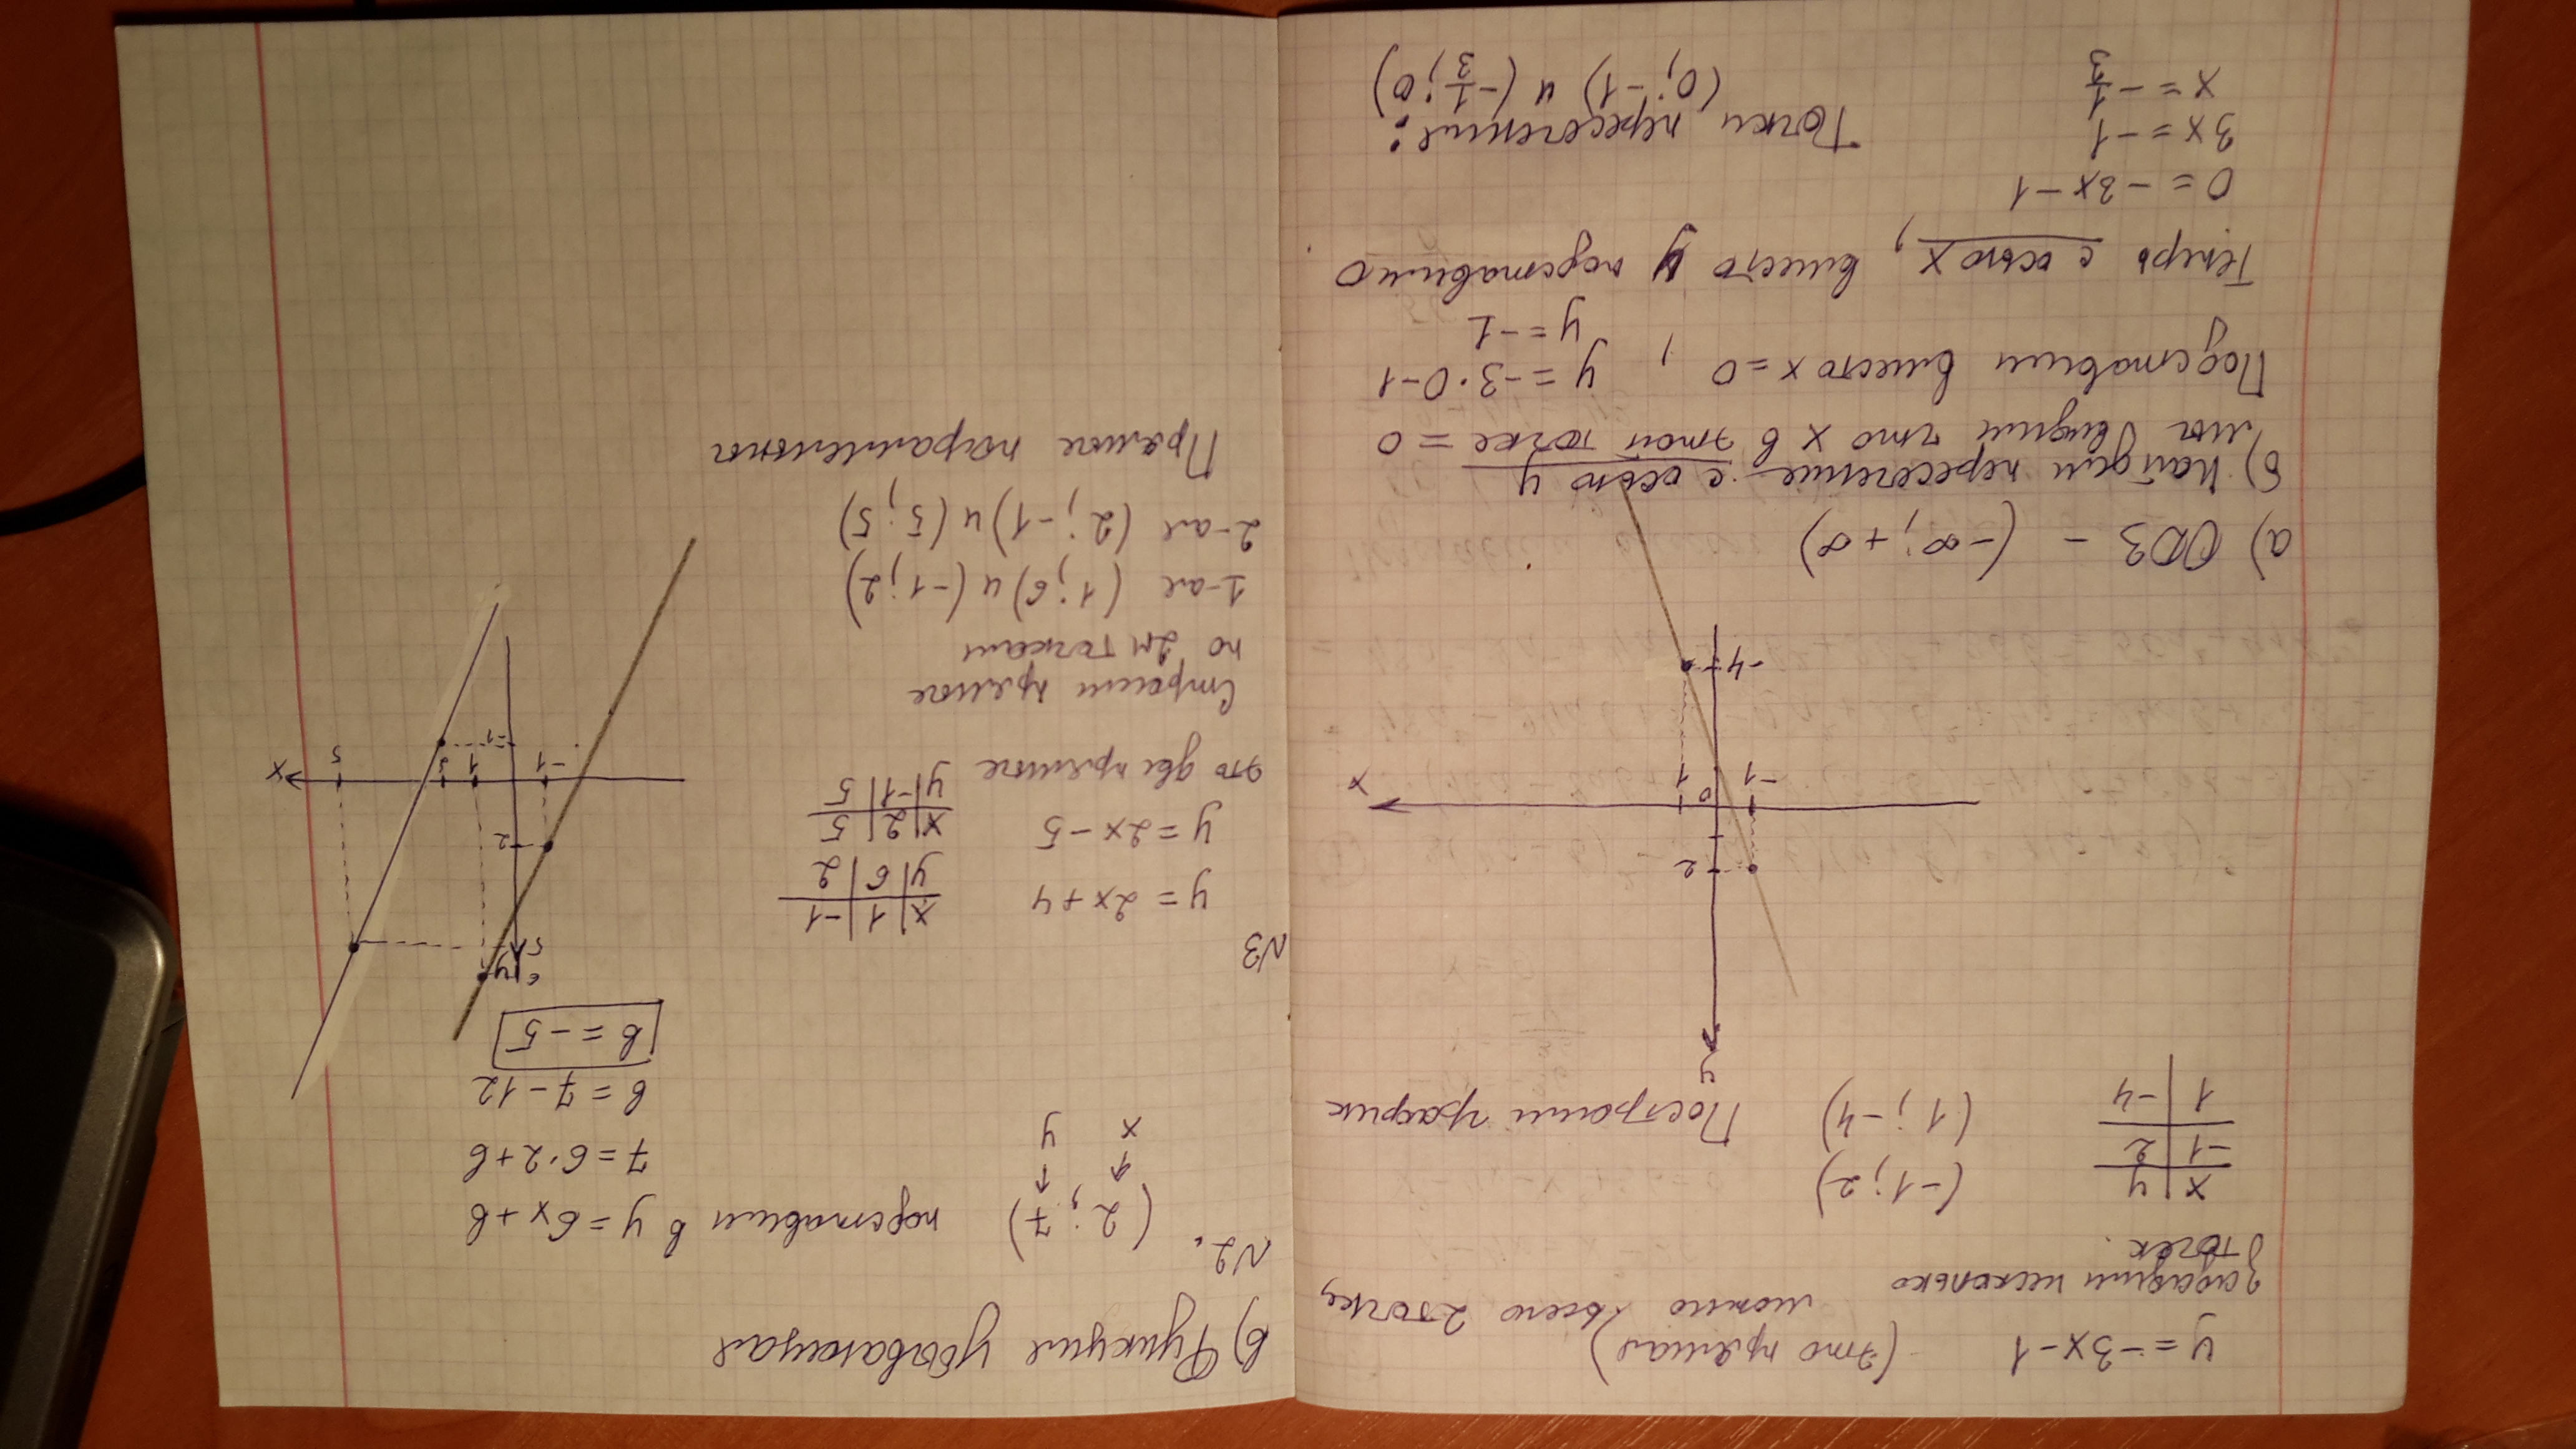 y = -3x-1 (это прямая)
Зададим несколько можно всего 2 точки,
точек.
x | y (-1; 2)
-1 | 2
1 | -4 (1; -4) Построим график
y
2
-1 0 1 x
-4
а) ОДЗ - (-∞; +∞)
б) Найдем пересечение с осью y
мы видим что x в этой точке = 0
Подставим вместо x=0, y=-3·0-1
y=-1
Теперь с осью x, вместо y подставим 0
0 = -3x-1
3x = -1
x = -1/3
Точки пересечения:
(0; -1) и (-1/3; 0)
в) Функция убывающая
N2. (2; 7) подставим в y=6x+b
x y
7=6·2+b
b=7-12
b=-5
N3
y = 2x+4
x | 1 | -1
y | 6 | 2
y = 2x-5
x | 2 | 5
y | -1 | 5
это две прямые
Строим прямые
по 2м точкам
1-ая (1; 6) и (-1; 2)
2-ая (2; -1) и (5; 5)
Прямые параллельны
y
6
5
2
-1 1 2 5 x
-1